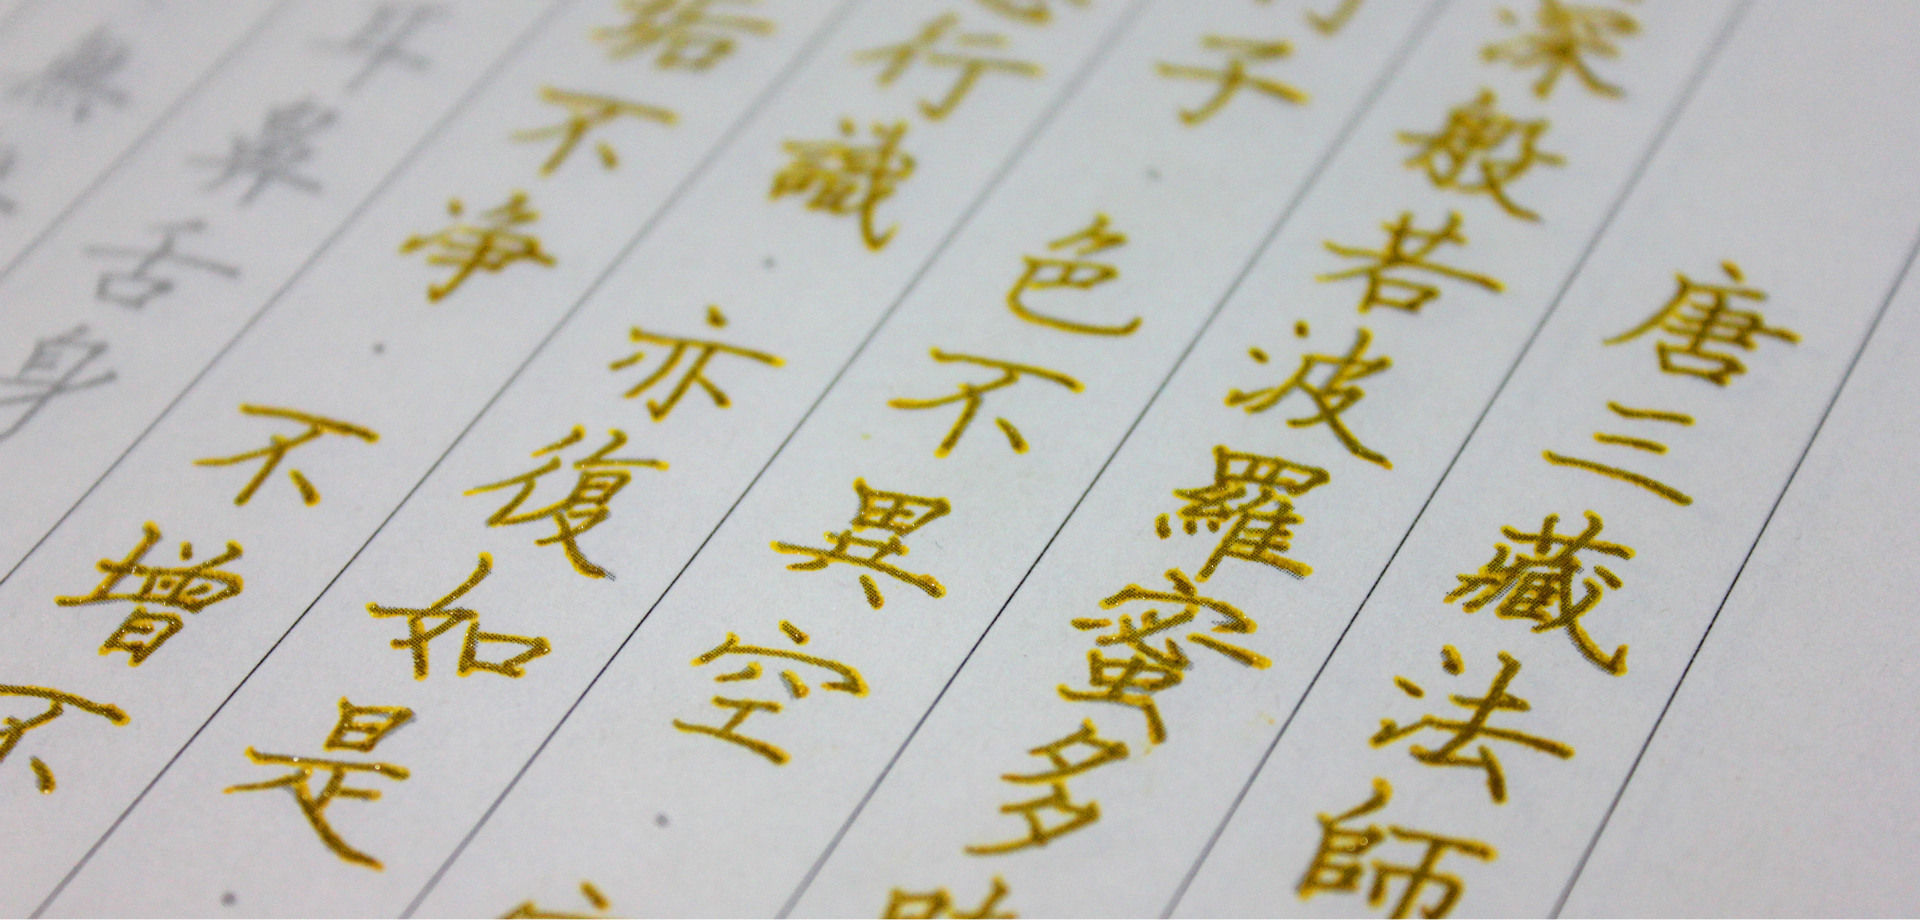 唐三藏法師
深般若波羅蜜多時
子 色不異空
行識 亦復如是
垢不淨 不增不
耳鼻舌身
無